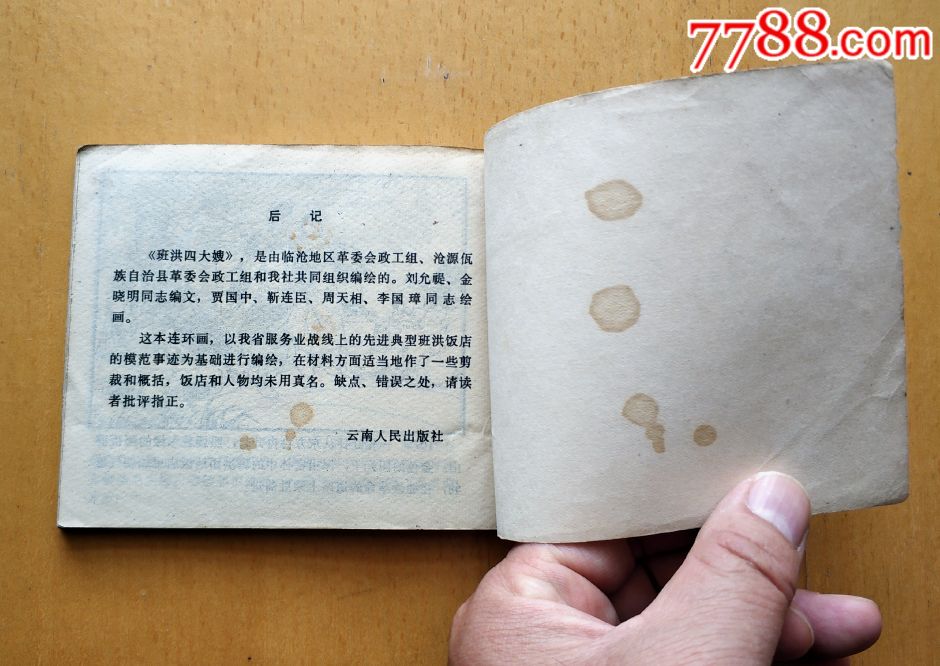 7788.com
后 记
《班洪四大嫂》，是由临沧地区革委会政工组、沧源佤
族自治县革委会政工组和我社共同组织编绘的。刘允禔、金
晓明同志编文，贾国中、靳连臣、周天相、李国璋同志绘
画。
这本连环画，以我省服务业战线上的先进典型班洪饭店
的模范事迹为基础进行编绘，在材料方面适当地作了一些剪
裁和概括，饭店和人物均未用真名。缺点、错误之处，请读
者批评指正。
云南人民出版社